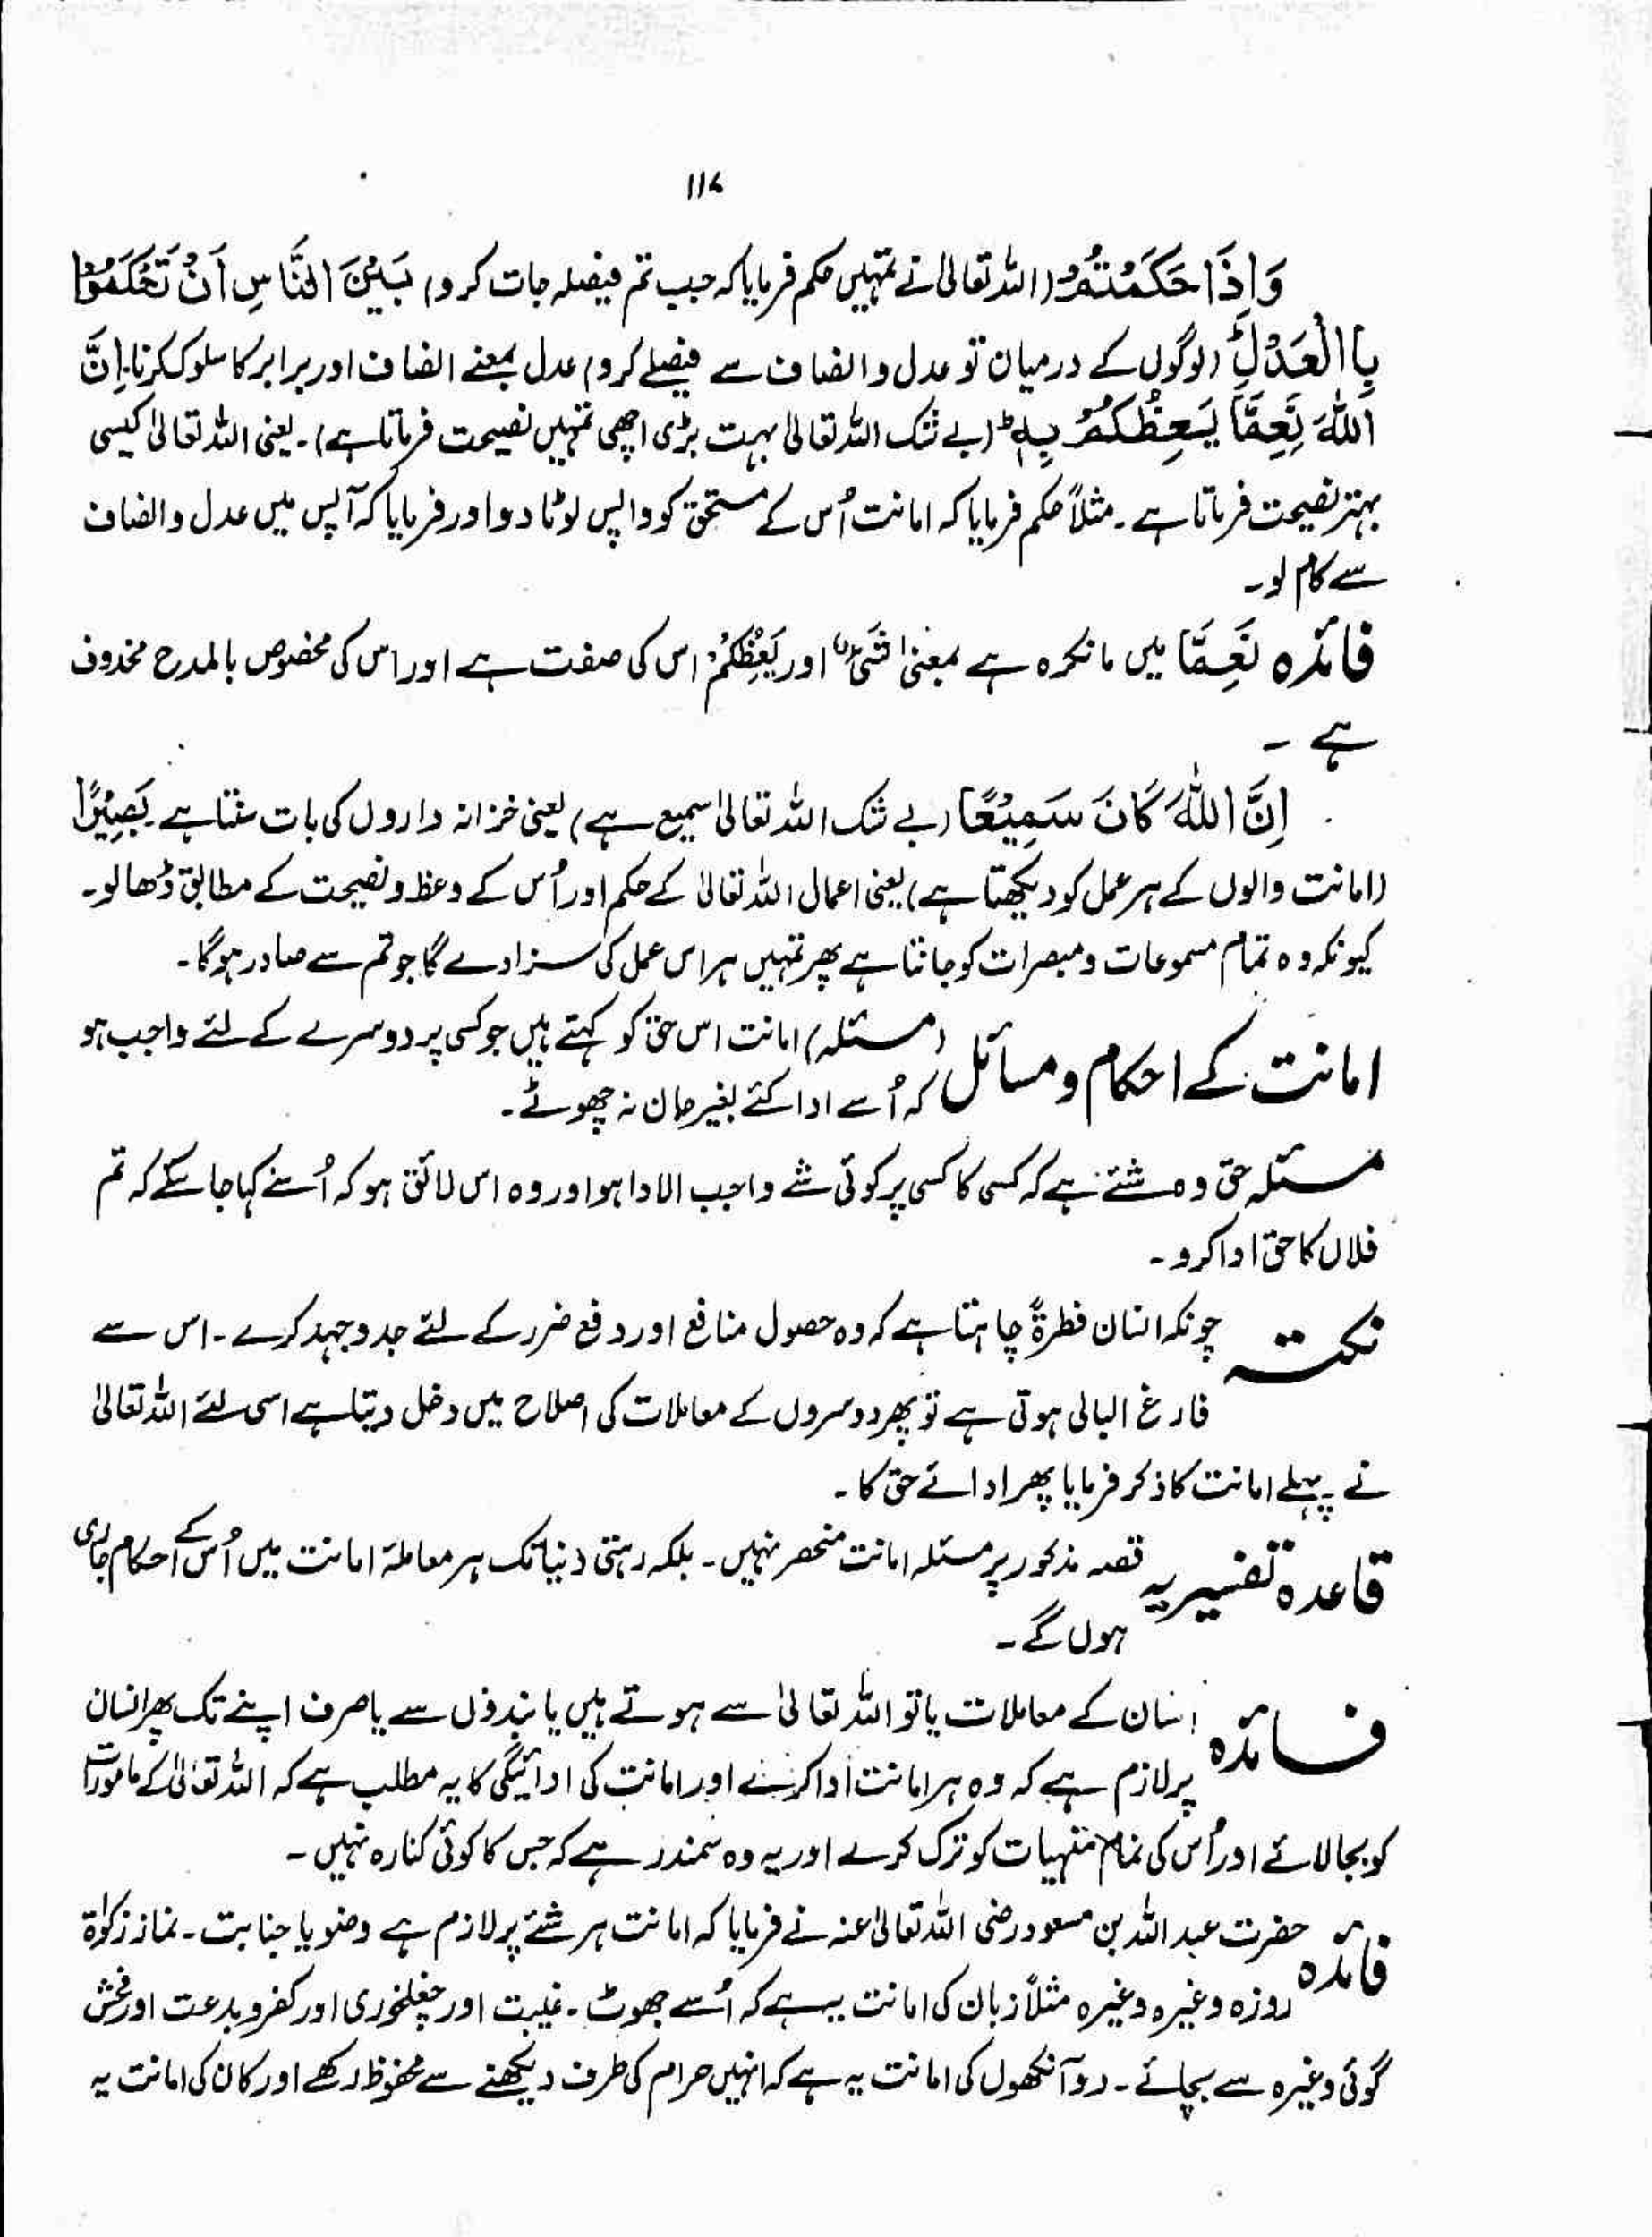 ۱۱۷
وَاِذَا حَكَمْتُمْ (اللہ تعالیٰ نے تمہیں حکم فرمایا کہ جب تم فیصلہ جات کرو) بَيْنَ النَّاسِ اَنْ تَحْكُمُوْا
بِاالْعَدْلِ (لوگوں کے درمیان تو عدل و انصاف سے فیصلے کرو) عدل بمعنے انصاف اور برابر کا سلوک کرنا۔ اِنَّ
اللّٰهَ نِعِمَّا يَعِظُكُمْ بِهٖ ط (بے شک اللہ تعالیٰ بہت بڑی اچھی تمہیں نصیحت فرماتا ہے)۔ یعنی اللہ تعالیٰ کیسی
بہتر نصیحت فرماتا ہے۔ مثلاً حکم فرمایا کہ امانت اُس کے مستحق کو واپس لوٹا دو اور فرمایا کہ آپس میں عدل و انصاف
سے کام لو۔
فائدہ نَعِمَّا میں ما نکرہ ہے بمعنیٰ شَیْءٌ اور یَعِظُکُمْ اس کی صفت ہے اور اس کی مخصوص بالمدح مخدوف
ہے ۔
اِنَّ اللّٰهَ كَانَ سَمِيْعًا (بے شک اللہ تعالیٰ سمیع ہے) یعنی خزانہ داروں کی بات سنتا ہے۔ بَصِيْرًا
(امانت والوں کے ہر عمل کو دیکھتا ہے) یعنی اعمال اللہ تعالیٰ کے حکم اور اُس کے وعظ و نصیحت کے مطابق ڈھالو۔
کیونکہ وہ تمام مسموعات و مبصرات کو جانتا ہے پھر تمہیں ہر اس عمل کی سزا دے گا جو تم سے صادر ہوگا۔
امانت کے احکام و مسائل (مسئلہ) امانت اس حق کو کہتے ہیں جو کسی پر دوسرے کے لئے واجب ہو
کہ اُسے ادا کئے بغیر جان نہ چھوٹے۔
مسئلہ حق وہ شئے ہے کہ کسی کا کسی پر کوئی شے واجب الادا ہو اور وہ اس لائق ہو کہ اُسے کہا جا سکے کہ تم
فلاں کا حق ادا کرو۔
نکتہ چونکہ انسان فطرۃً چاہتا ہے کہ وہ حصول منافع اور دفع ضرر کے لئے جدوجہد کرے۔ اس سے
فارغ البالی ہوتی ہے تو پھر دوسروں کے معاملات کی اصلاح میں دخل دیتا ہے اسی لئے اللہ تعالیٰ
نے پہلے امانت کا ذکر فرمایا پھر ادائے حق کا۔
قاعدہ تفسیریہ قصہ مذکور پر مسئلہ امانت منحصر نہیں۔ بلکہ رہتی دنیا تک ہر معاملۂ امانت میں اُس کے احکام جاری
ہوں گے۔
فائدہ انسان کے معاملات یا تو اللہ تعالیٰ سے ہوتے ہیں یا بندوں سے یا صرف اپنے تک پھر انسان
پر لازم ہے کہ وہ ہر امانت ادا کرے اور امانت کی ادائیگی کا یہ مطلب ہے کہ اللہ تعالیٰ کے مامورات
کو بجا لائے اور اُس کی تمام منہیات کو ترک کرے اور یہ وہ سمندر ہے کہ جس کا کوئی کنارہ نہیں۔
فائدہ حضرت عبداللہ بن مسعود رضی اللہ تعالیٰ عنہ نے فرمایا کہ امانت ہر شئے پر لازم ہے وضو یا جنابت۔ نماز زکوٰۃ
روزہ وغیرہ وغیرہ مثلاً زبان کی امانت یہ ہے کہ اُسے جھوٹ۔ غیبت اور چغلخوری اور کفر و بدعت اور فحش
گوئی وغیرہ سے بچائے۔ دو آنکھوں کی امانت یہ ہے کہ انہیں حرام کی طرف دیکھنے سے محفوظ رکھے اور کان کی امانت یہ